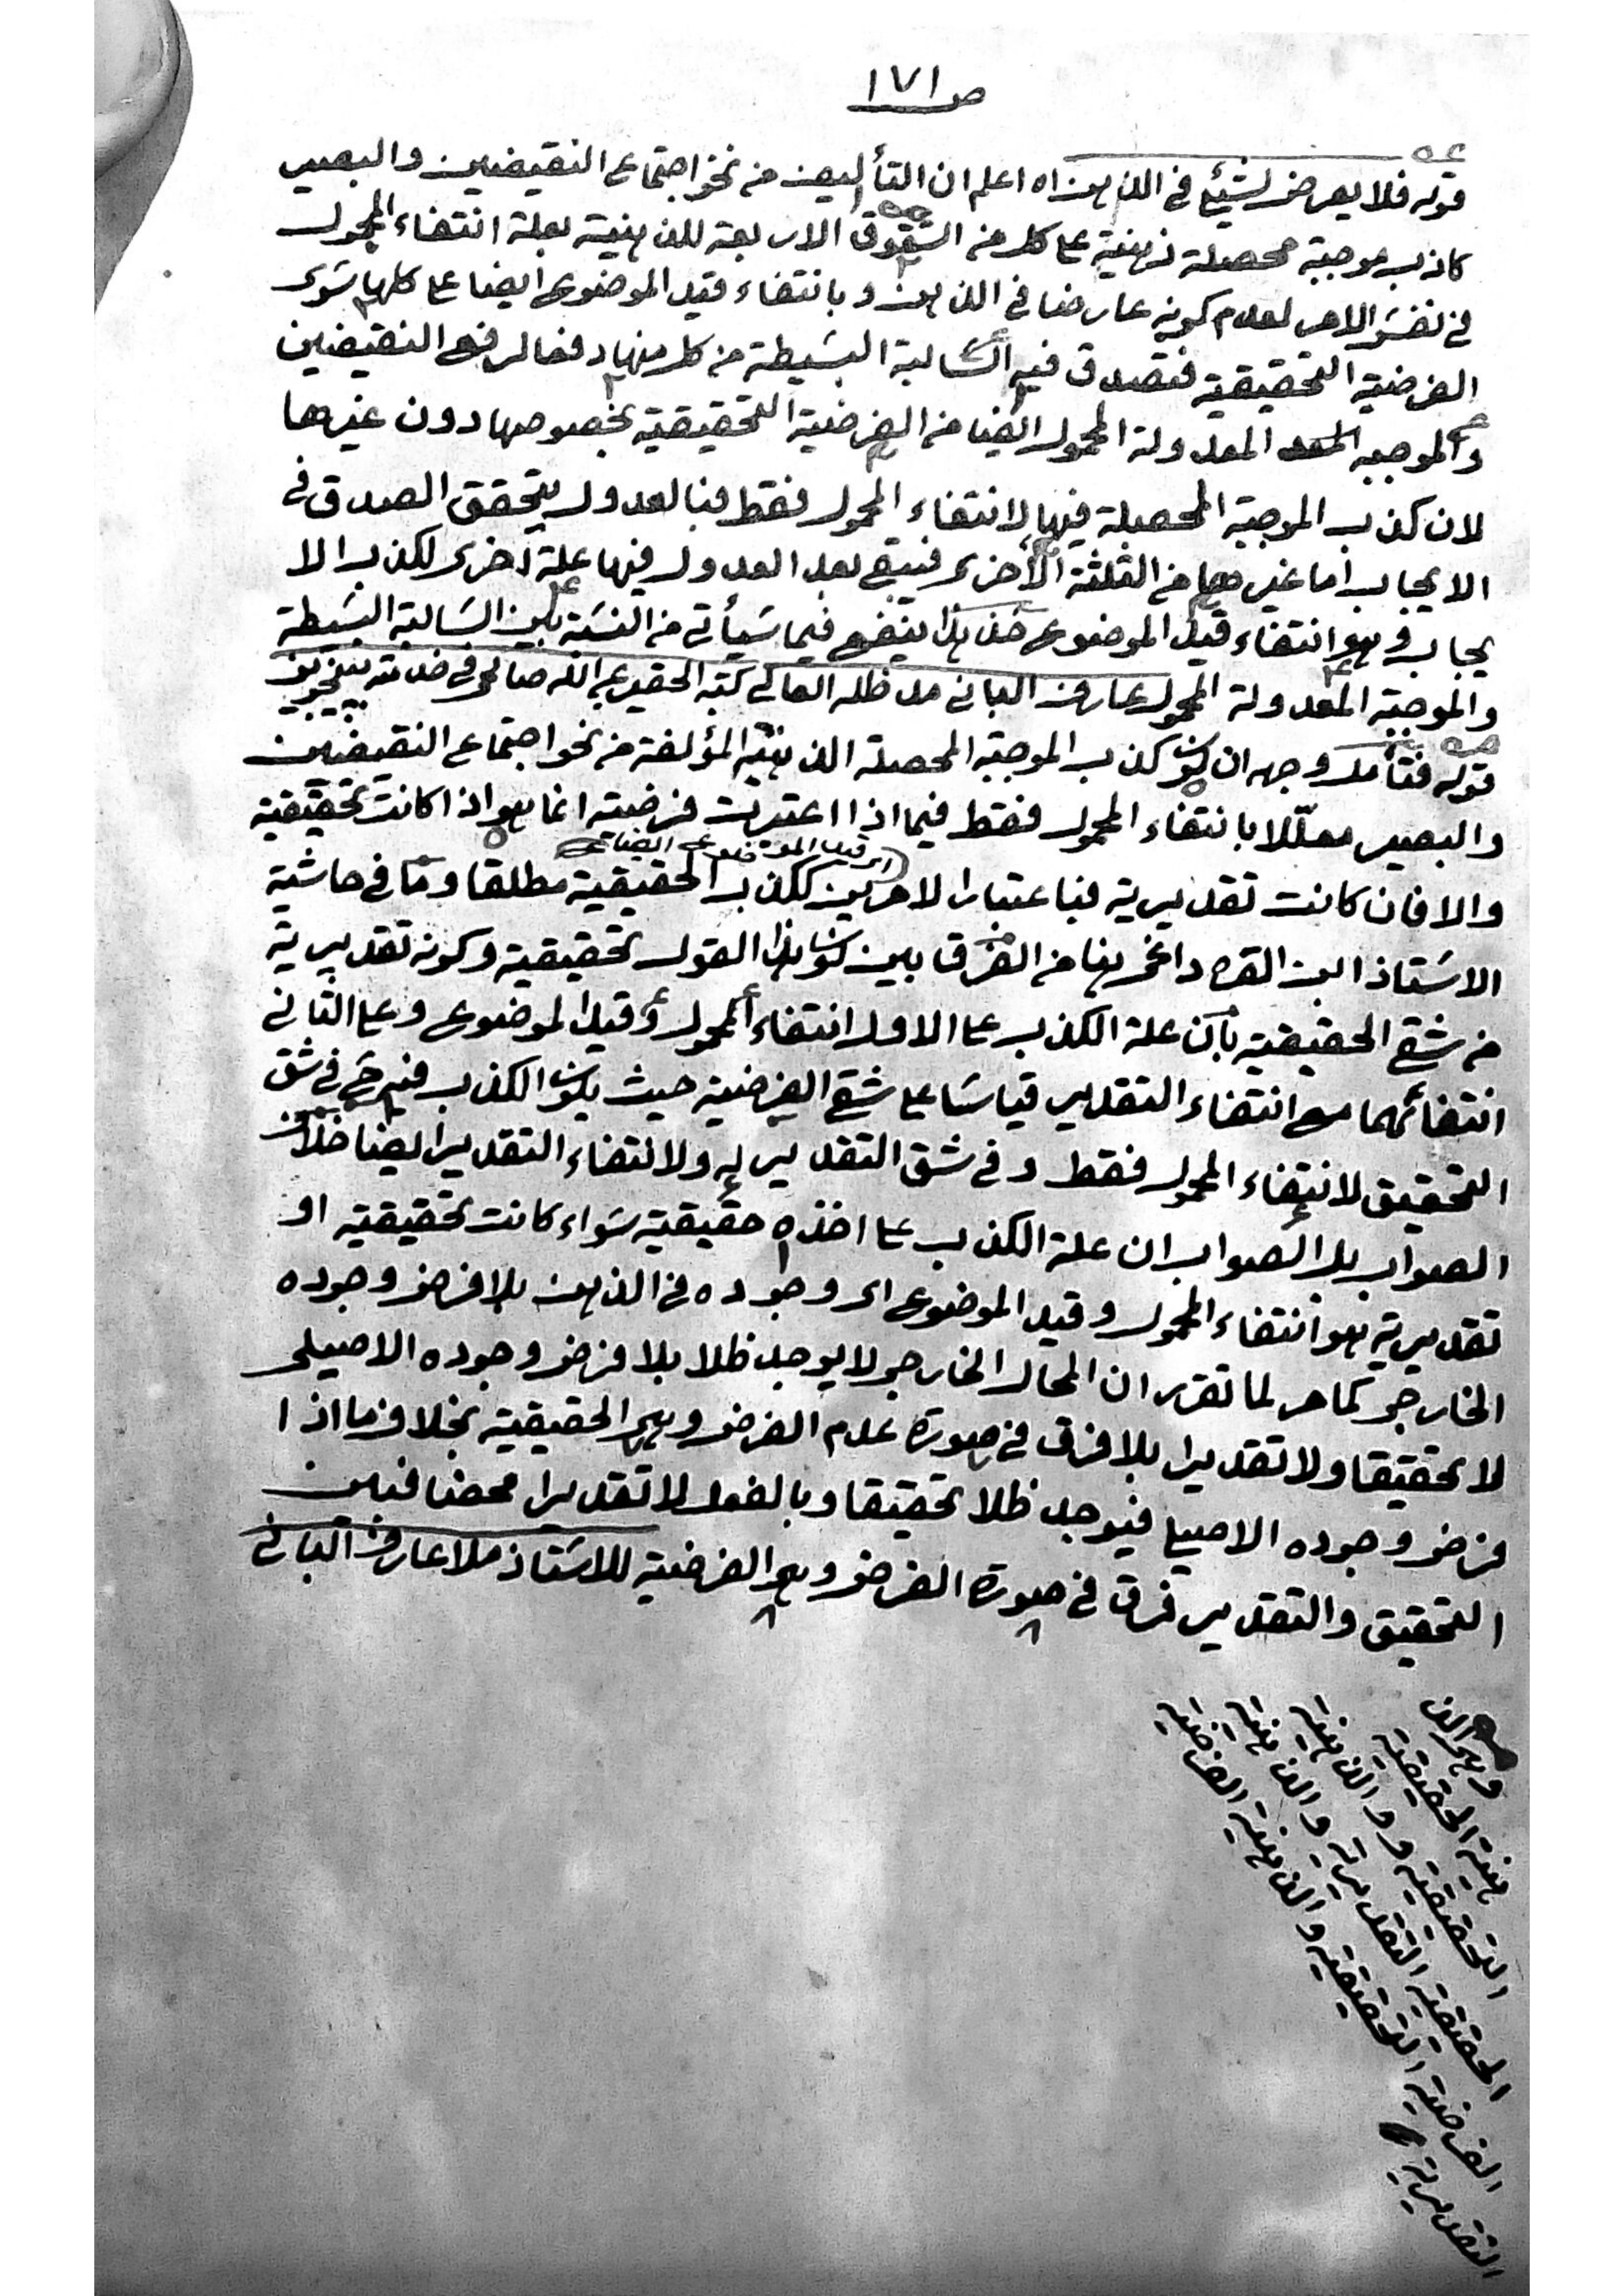 ص ١٧١
قوله فلا يعرض لشيئ في الذهن اه اعلم ان التأليف من نحو اجتماع النقيضين والبصير
كاذب موجبة محصلة ذهنية على كل من الشقوق الاربعة للذهنية بعلة انتفاء المحمول
في نفس الامر لعدم كونه عارضا في الذهن وبانتفاء قيد الموضوع ايضا على كلها سوى
الفرضية التحقيقية فتصدق فيه السالبة البسيطة من كل منها دفعا لرفع النقيضين
والموجبه المعدولة المحمول ايضا من الفرضية التحقيقية بخصوصها دون غيرها
لان كذب الموجبة المحصلة فيها لانتفاء المحمول فقط فبالعدول يتحقق الصدق في
الايجاب اما غيرها من الثلثة الأخرى فيبقى بعد العدول فيها علة أخرى لكذب الا
يجاب وهو انتفاء قيد الموضوع خذ هذا ينفع فيما سيأتى من النسبة بين السالبة البسيطة
والموجبة المعدولة المحمول عارف الباني مد ظله العالي كتبه الحقير عبد الله صالحي في خدمته
قوله فتأمل وجهه ان كون كذب الموجبة المحصلة الذهنية المؤلفة من نحو اجتماع النقيضين
والبصير معلّلا بانتفاء المحمول فقط فيما اذا اعتبرت فرضية انما هو اذا كانت تحقيقية
اى قيد الموضوع ايضا
والا فان كانت تقديرية فباعتبار الامرين ككذب الحقيقية مطلقا وما في حاشية
الاستاذ ابن القره داغى هنا من الفرق بين كون هذا القول تحقيقية وكونه تقديرية
من شقي الحقيقية بأن علة الكذب على الاول انتفاء المحمول وقيد الموضوع وعلى الثاني
انتفائهما مع انتفاء التقدير قياسا على شقي الفرضية حيث يكون الكذب فيه حي في شق
التحقيق لانتفاء المحمول فقط وفي شق التقدير له ولانتفاء التقدير ايضا خلاف
الصواب بل الصواب ان علة الكذب على اخذه حقيقية سواء كانت تحقيقية او
تقديرية هو انتفاء المحمول وقيد الموضوع اى وجوده في الذهن بلا فرض وجوده
الخارجى كما مر لما تقرر ان المحال الخارجى لا يوجد ظلا بلا فرض وجوده الاصيلى
لا تحقيقا ولا تقديرا بلا فرق في صورة عدم الفرض وهى الحقيقية بخلاف ما اذا
فرض وجوده الاصيلى فيوجد ظلا تحقيقا وبالفعل لا تقديرا محضا فبين
التحقيق والتقدير فرق في صورة الفرض وهى الفرضية للاستاذ ملا عارف البانى
وهى الذ
هنية الحقيقية
التحقيقية والذهنية
الحقيقية التقديرية والذهنية
الفرضية التحقيقية والذهنية الفرضية
التقديرية